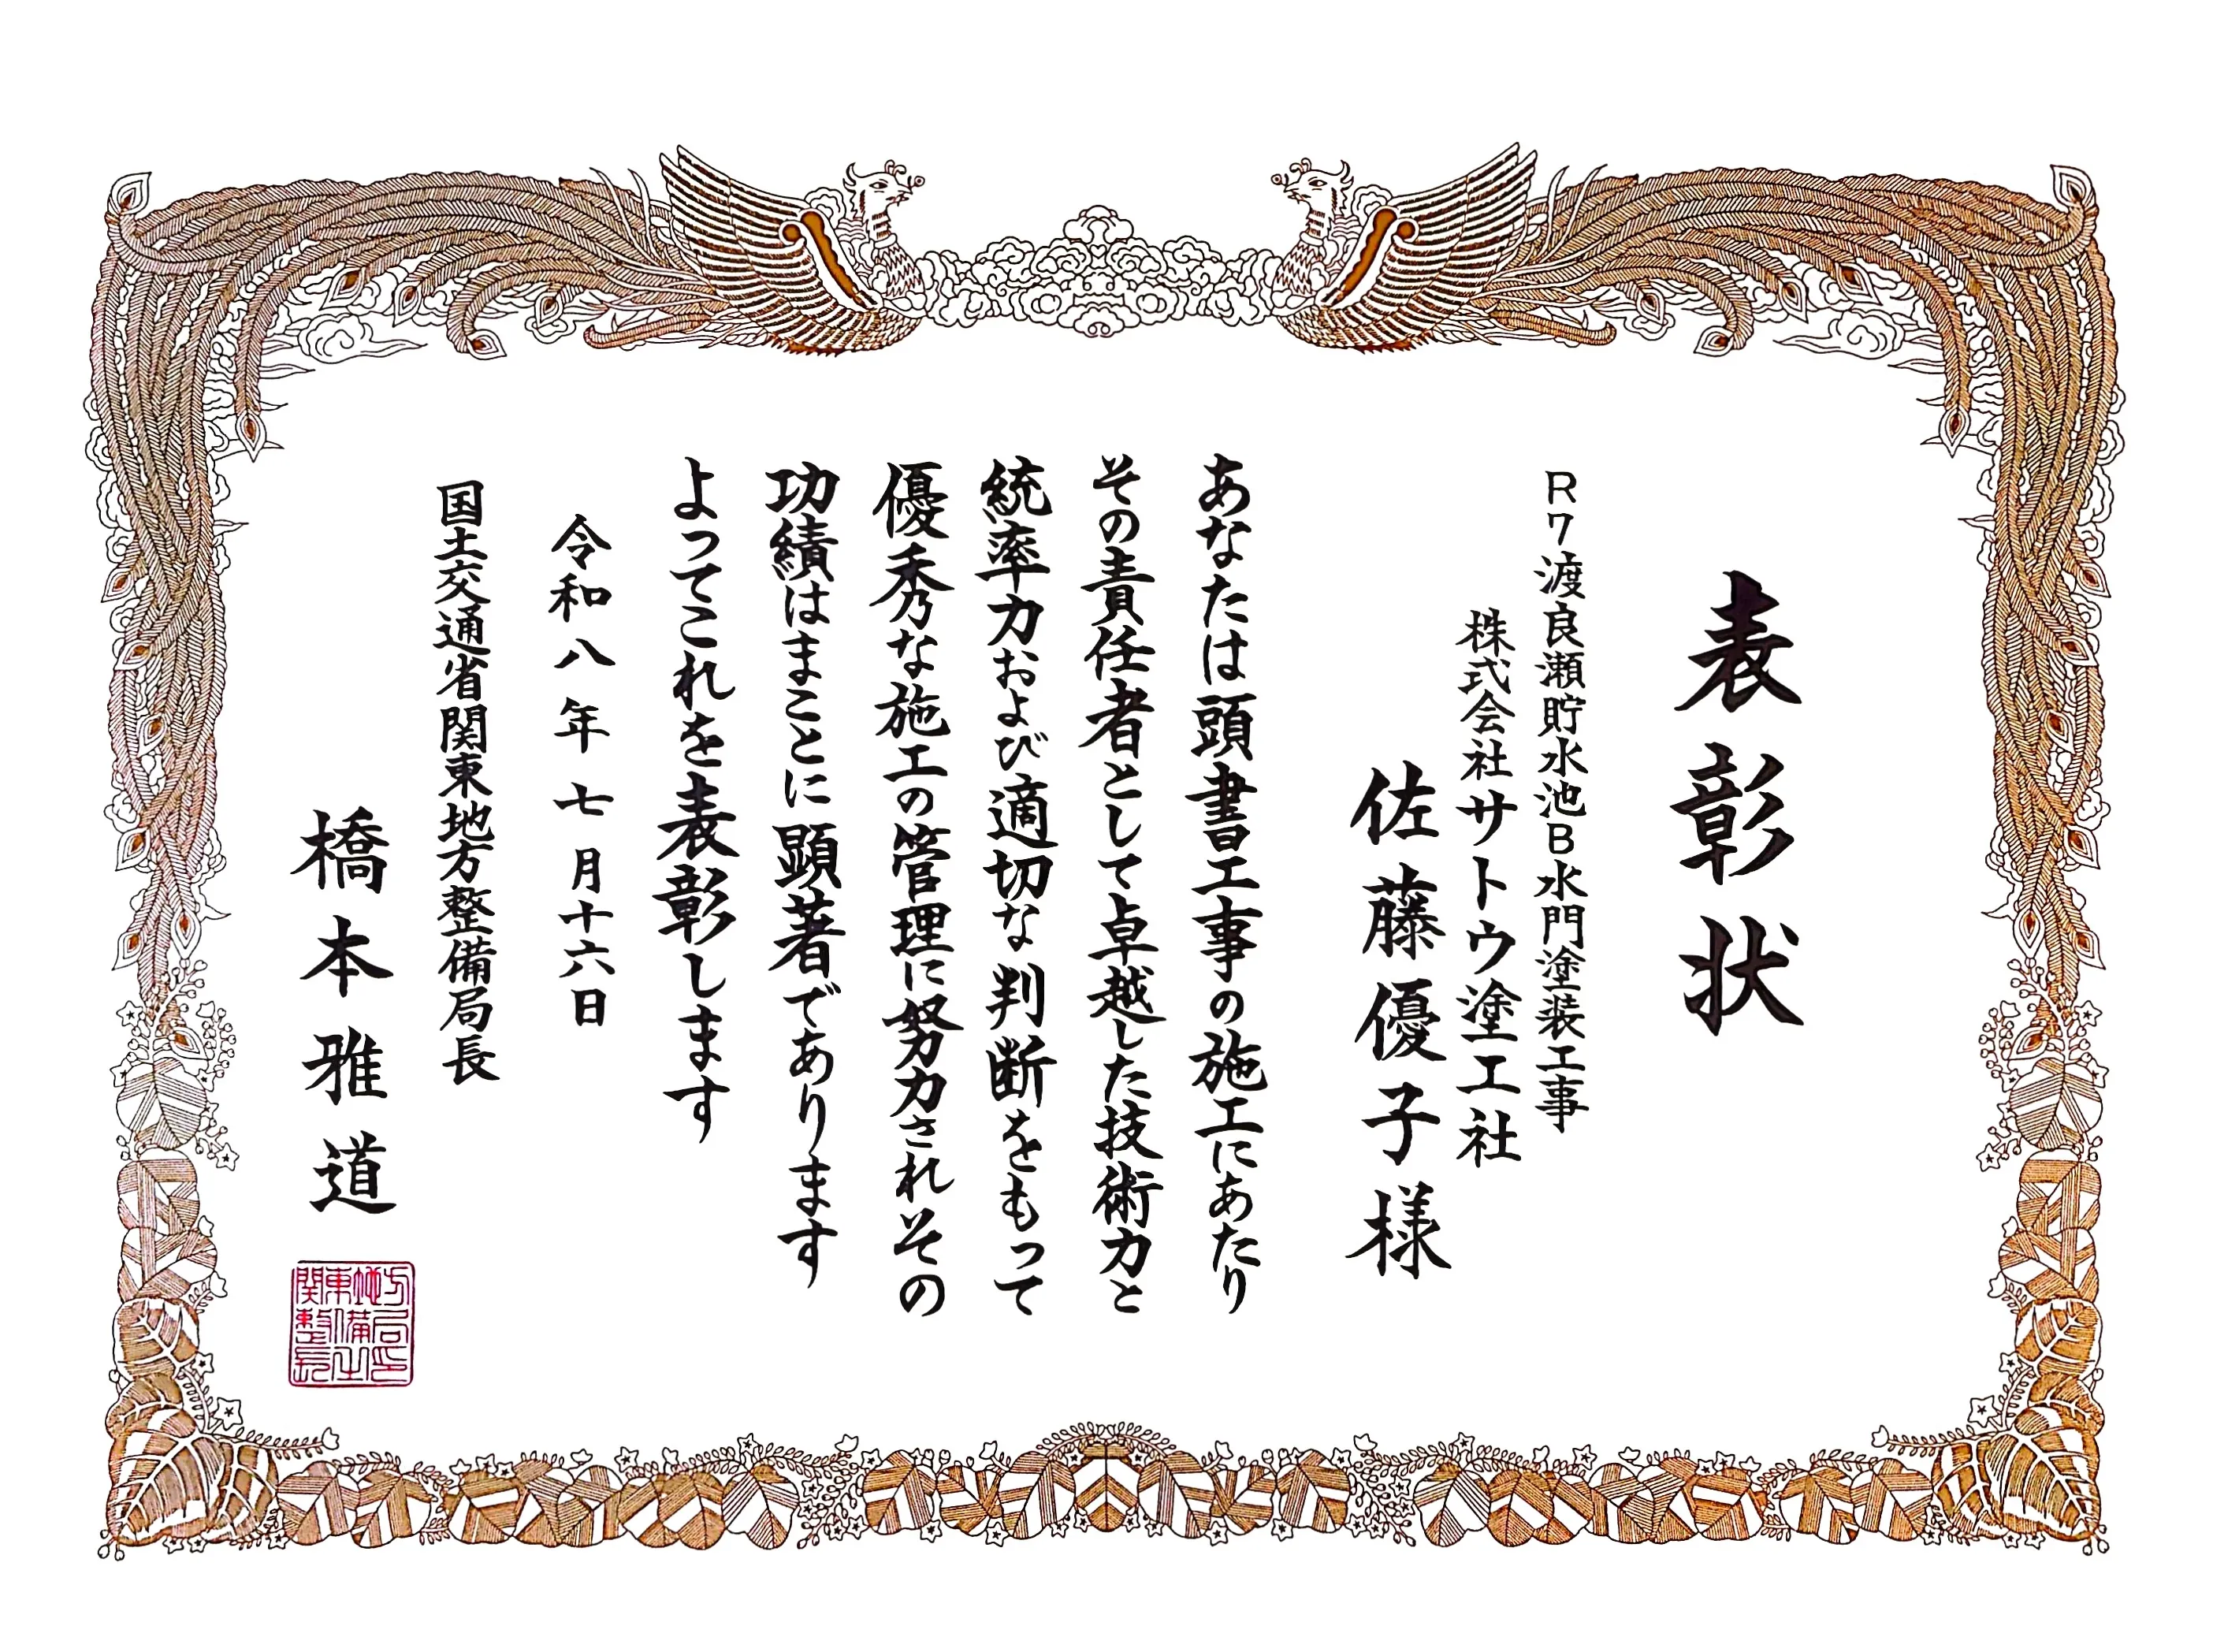 表彰状
R7渡良瀬貯水池B水門塗装工事
株式会社サトウ塗工社
佐藤優子様
あなたは頭書工事の施工にあたり
その責任者として卓越した技術力と
統率力および適切な判断をもって
優秀な施工の管理に努力されその
功績はまことに顕著であります
よってこれを表彰します
令和八年七月十六日
国土交通省関東地方整備局長
橋本雅道